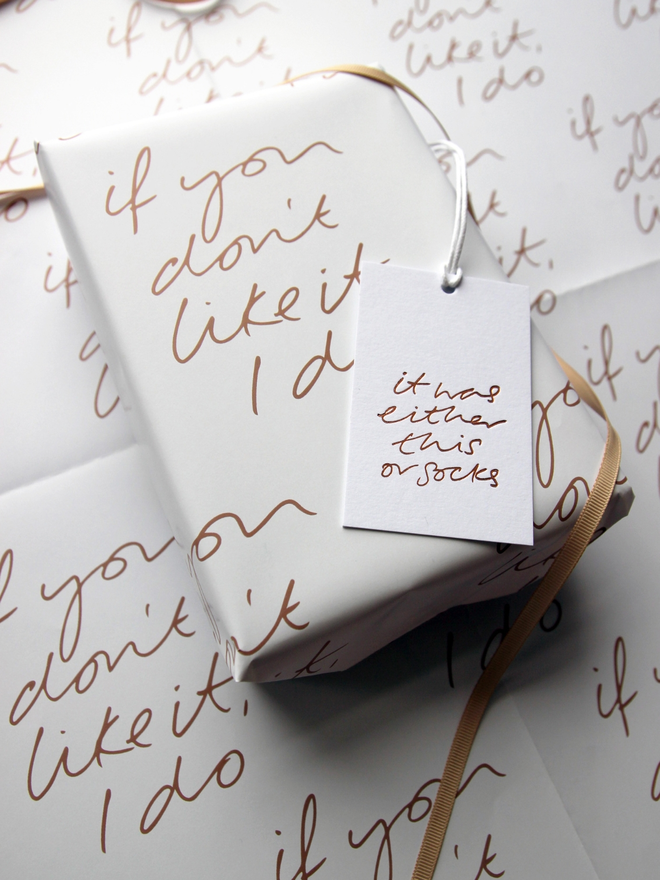 if you
don't
like
don't
like it,
I do
if you
don't
like it
I d
it was
either
this
or socks
you
don't
like it,
I do
if you